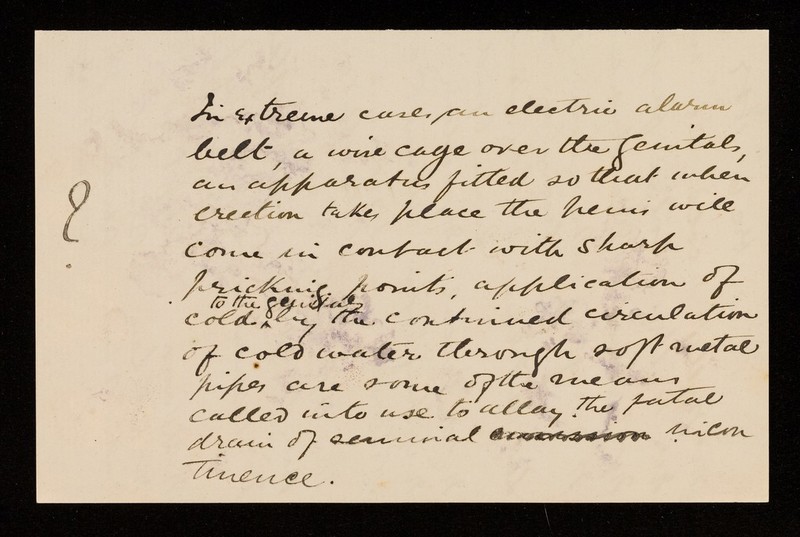 In extreme cases, an electric alarm
belt, a wire cage over the genitals,
an apparatus fitted so that when
erection takes place the penis will
come in contact with sharp
pricking points, application of
to the genitals
cold, by the continued circulation
of cold water through soft metal
pipes are some of the means
called into use to allay the fatal
drain of seminal incon
tinence.
?